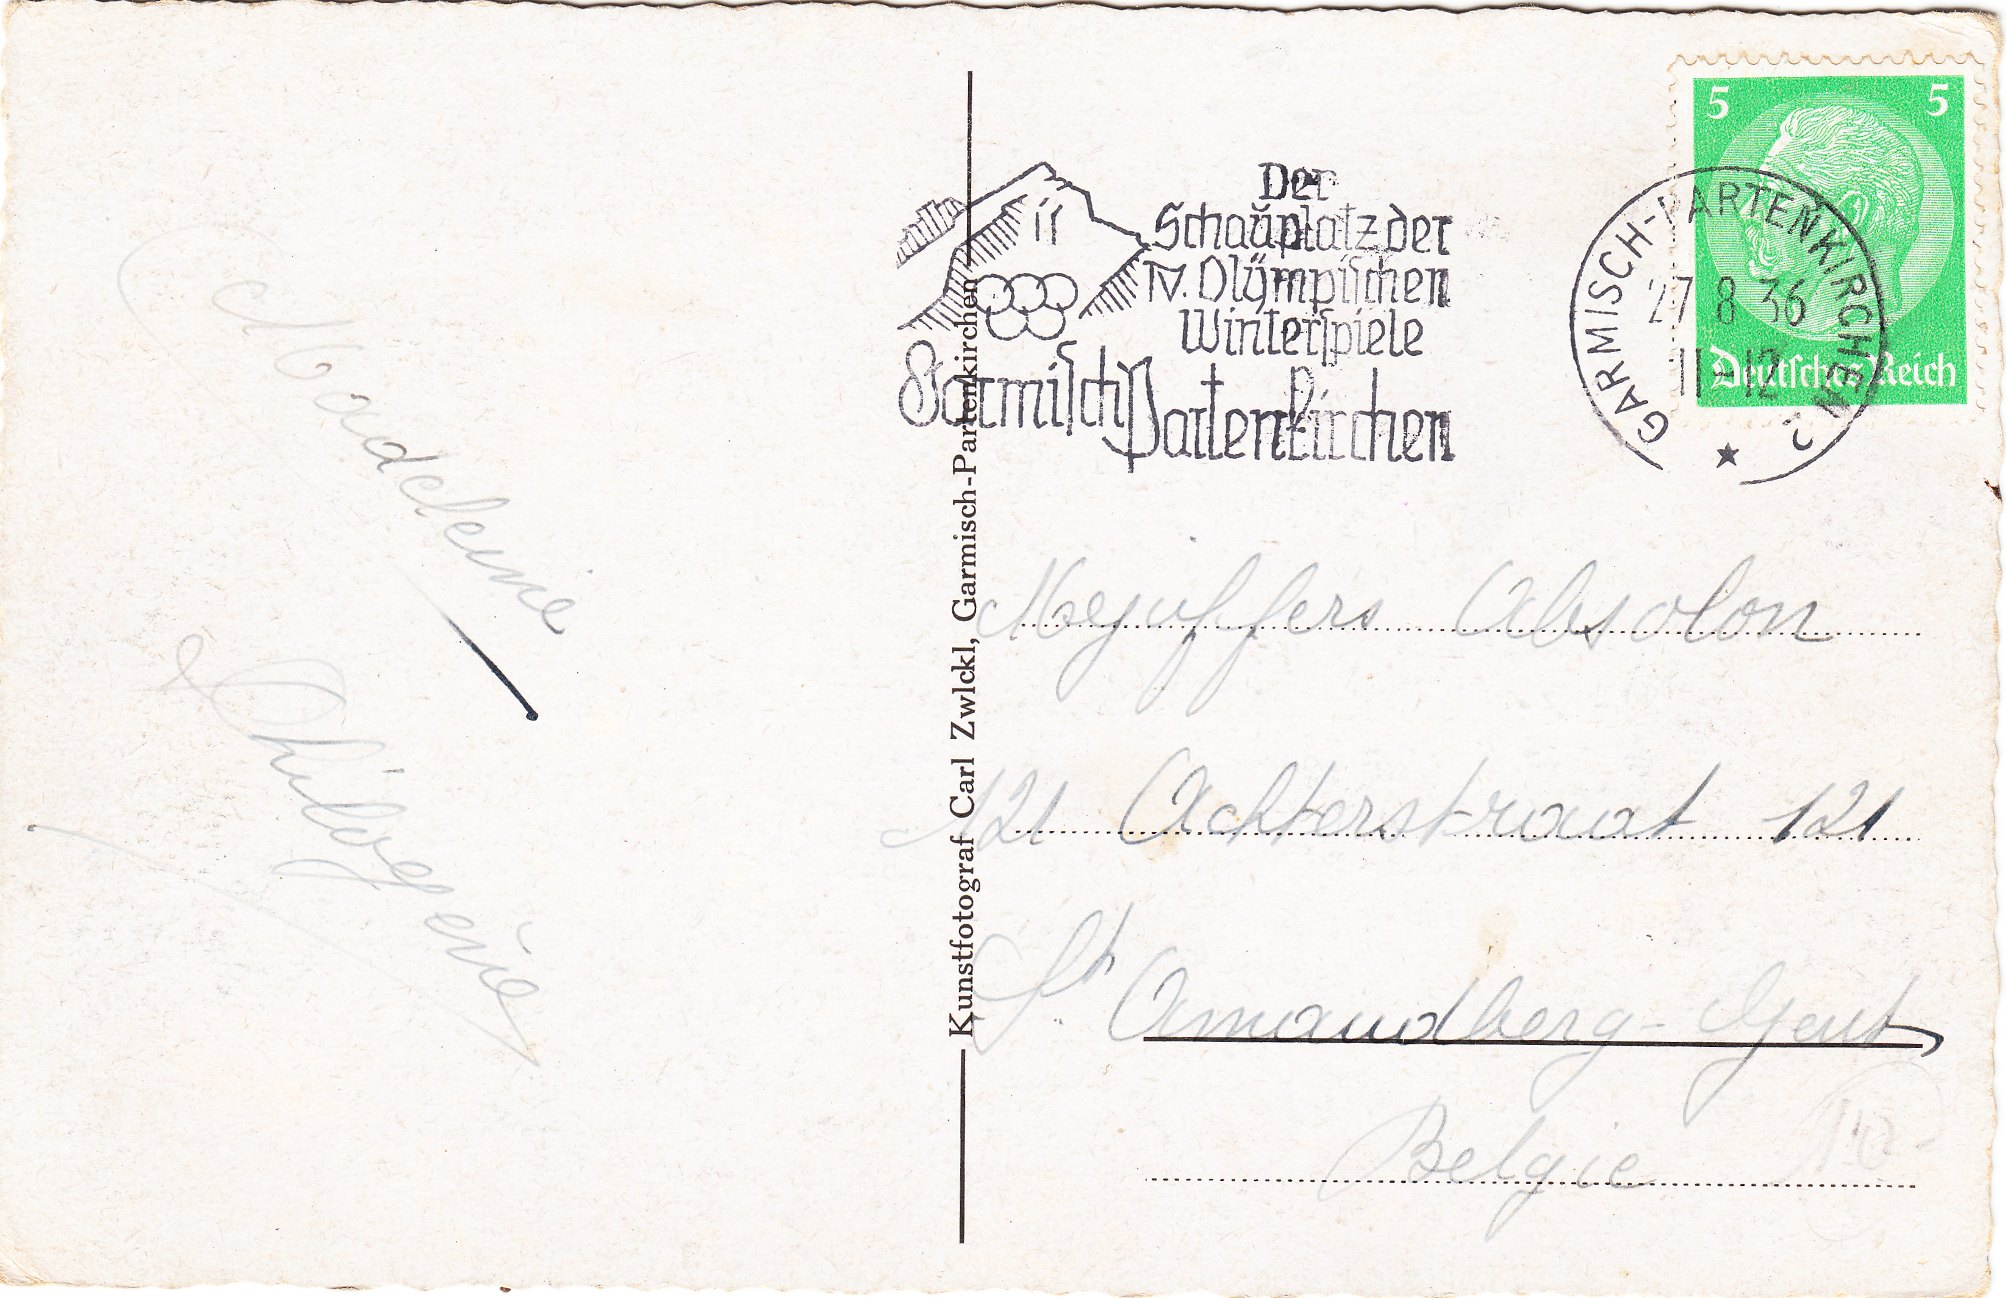 5 5
Deutsches Reich
GARMISCH-PARTENKIRCHEN 2
27 8 36
11-12
Der
Schauplatz der
IV. Olÿmpischen
Winterspiele
Garmisch
Partenkirchen
Madeleine
&
Kunstfotograf Carl Zwickl, Garmisch-Partenkirchen
Mejuffers Absolon
121 Achterstraat 121
St Amandberg-Gent
Belgie